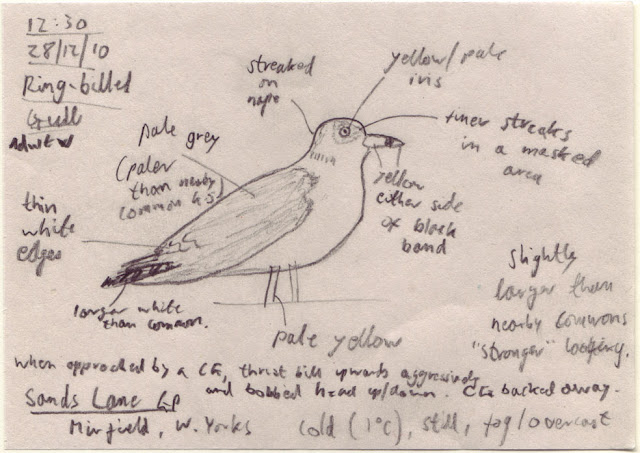 12:30
28/12/10
Ring-billed
Gull
Adult w
streaked
on
nape
yellow/pale
iris
finer streaks
in a masked
area
pale grey
(paler
than nearby
common G's)
thin
white
edges
yellow
either side
of black
band
larger white
than common.
pale yellow
slightly
larger than
nearby commons
"stronger" looking.
when approached by a CG, thrust bill upwards aggressively
and bobbed head up/down. CG backed away.
Sands Lane GP
Mirfield, W. Yorks
cold (1°C), still, fog/overcast